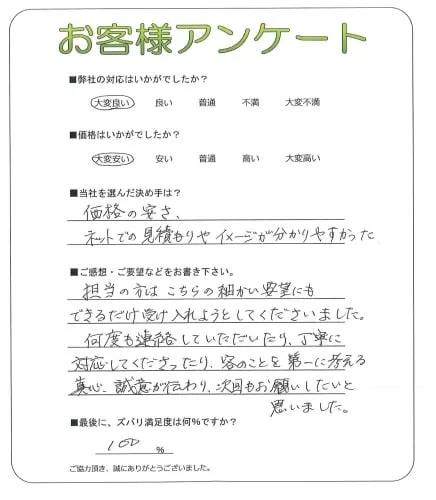 お客様アンケート
■弊社の対応はいかがでしたか？
大変良い 良い 普通 不満 大変不満
■価格はいかがでしたか？
大変安い 安い 普通 高い 大変高い
■当社を選んだ決め手は？
価格の安さ、
ネットでの見積もりやイメージが分かりやすかった
■ご感想・ご要望などをお書き下さい。
担当の方はこちらの細かい要望にも
できるだけ受け入れようとしてくださいました。
何度も連絡していただいたり、丁寧に
対応してくださったり、客のことを第一に考える
真心、誠意が伝わり、次回もお願いしたいと
思いました。
■最後に、ズバリ満足度は何%ですか？
100 %
ご協力頂き、誠にありがとうございました。